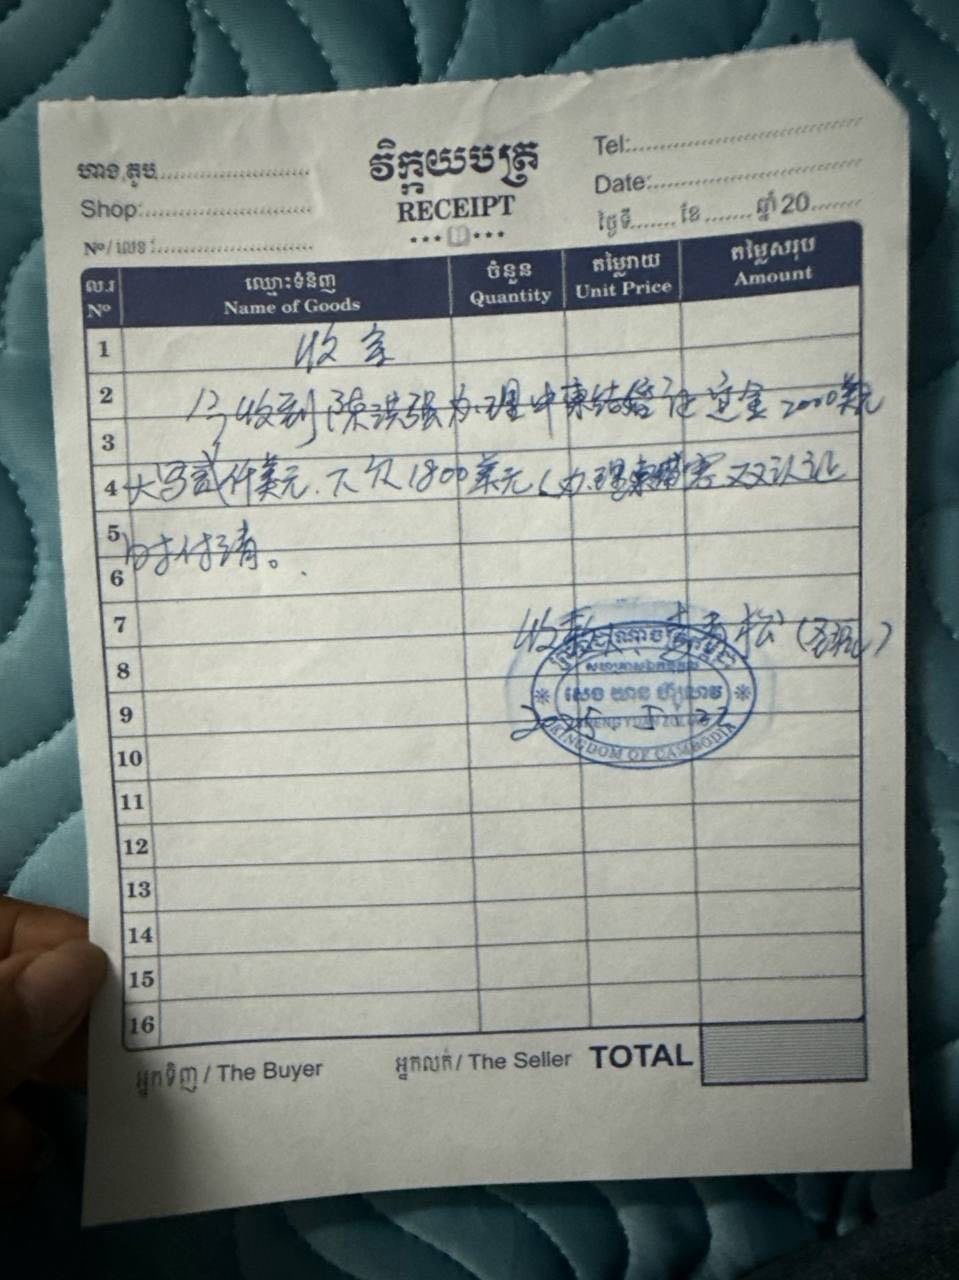 ហាង,តូប
វិក្កយបត្រ
Tel:
Shop:
RECEIPT
Date:
Nº/លេខ :
ថ្ងៃទី....... ខែ ....... ឆ្នាំ 20.......
ល.រ ឈ្មោះទំនិញ ចំនួន តម្លៃរាយ តម្លៃសរុប
Nº Name of Goods Quantity Unit Price Amount
1 收
2 今收到陈洪强办理中柬结婚证定金2000美元
3
4 大写贰仟美元.下欠1800美元(办理 双认证
5 时付清。
6
7 收款人 松
8
សេង យាន
9 2025
KINGDOM OF CAMBODIA
10
11
12
13
14
15
16
អ្នកទិញ / The Buyer អ្នកលក់ / The Seller TOTAL